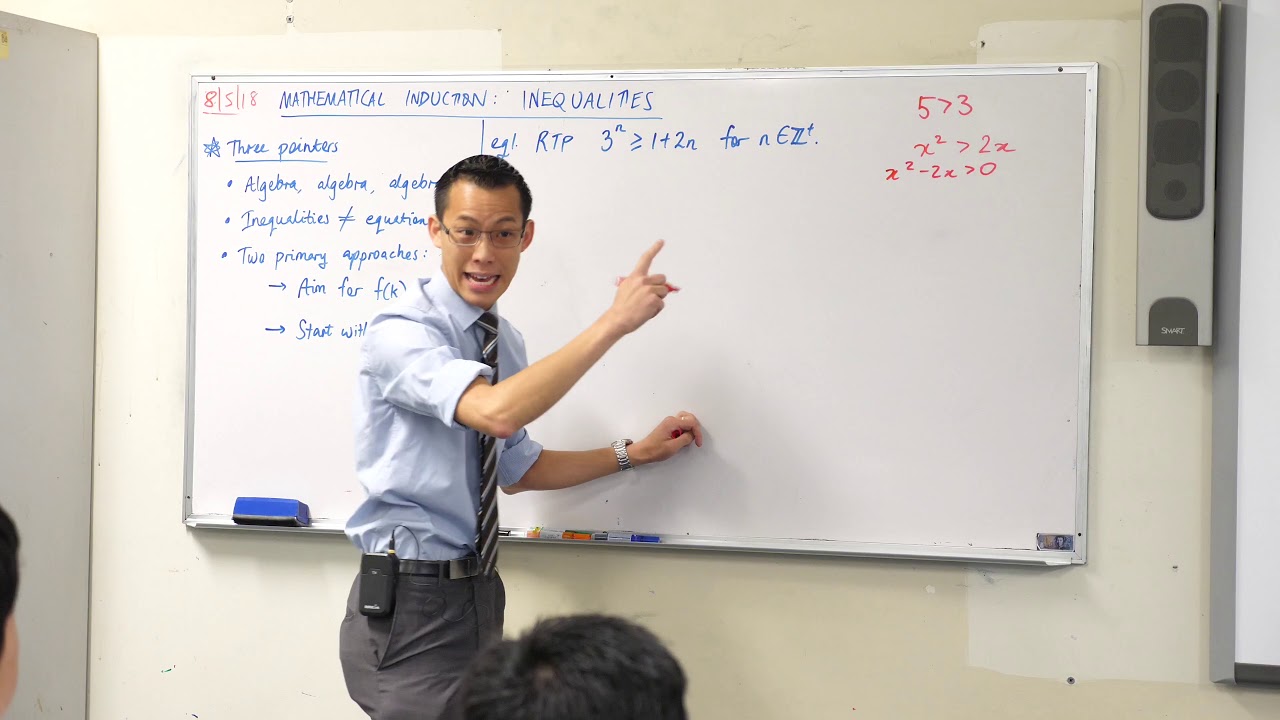 8|5|18 MATHEMATICAL INDUCTION: INEQUALITIES
☆ Three pointers
• Algebra, algebra, algebr
• Inequalities ≠ equation
• Two primary approaches:
→ Aim for f(k)
→ Start with
eg1. RTP 3ⁿ ≥ 1+2n for n∈ℤ⁺.
5>3
x² > 2x
x² -2x>0
SMART